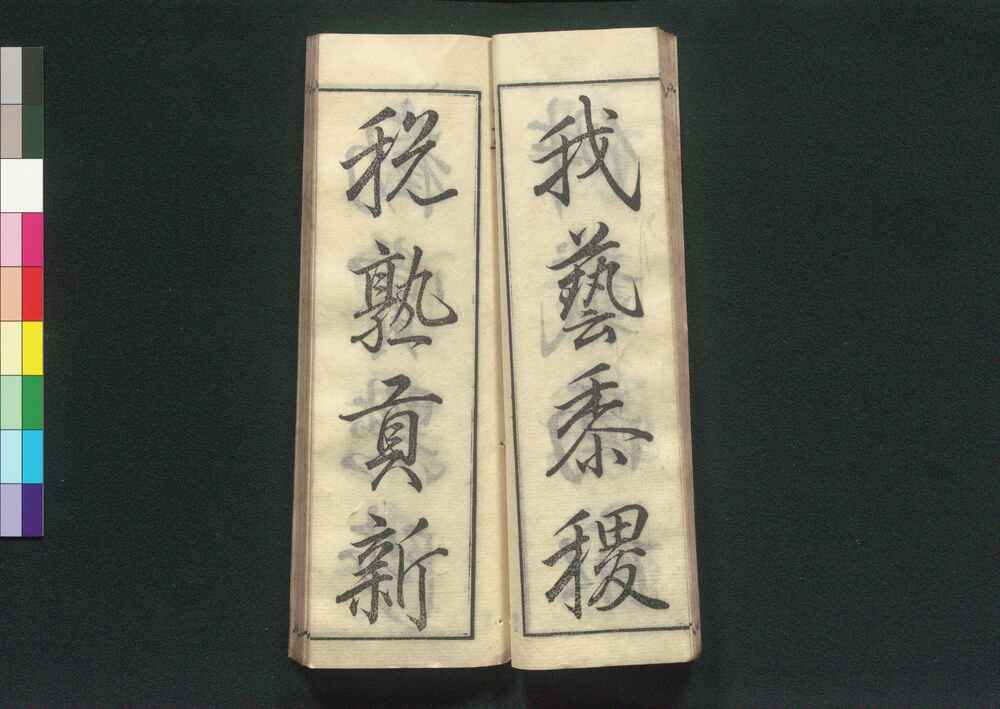 我藝黍稷
税熟貢新